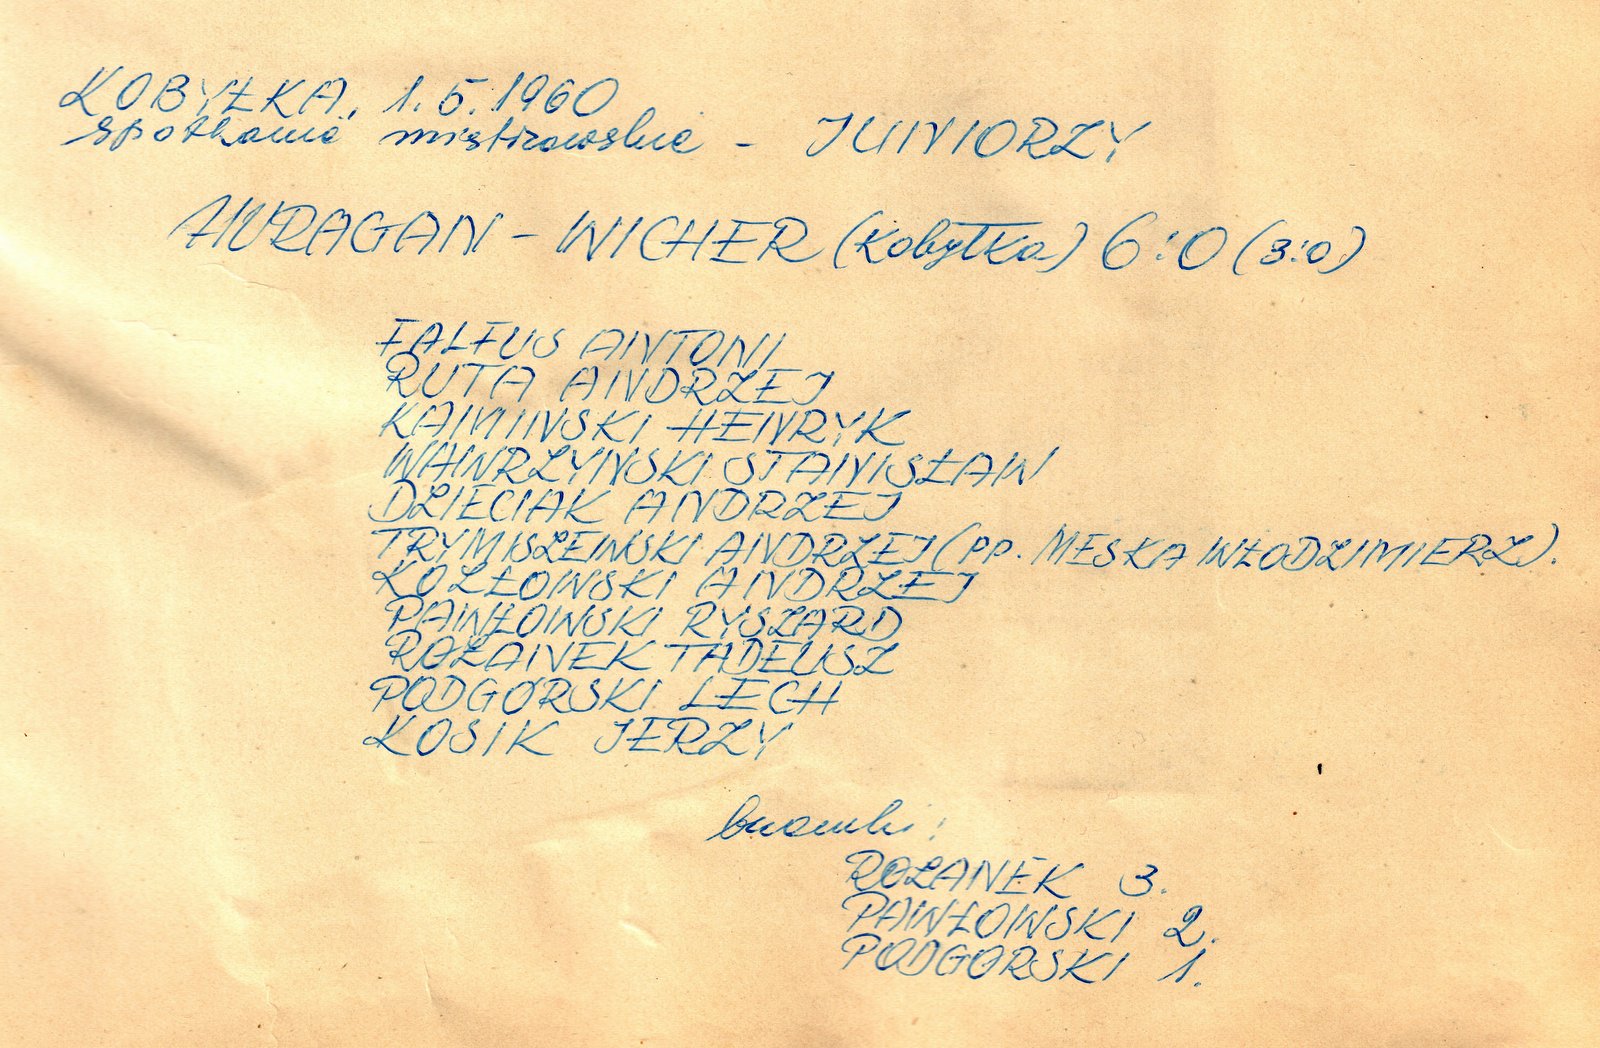 KOBYŁKA, 1.5.1960
spotkanie mistrzowskie - JUNIORZY
HURAGAN - WICHER (Kobyłka) 6:0 (3:0)
FALFUS ANTONI
RUTA ANDRZEJ
KAMINSKI HENRYK
WAWRZYNSKI STANISŁAW
DZIECIAK ANDRZEJ
TRYMISZEWSKI ANDRZEJ (pp. MESKA WŁODZIMIERZ).
KOZŁOWSKI ANDRZEJ
PAWŁOWSKI RYSZARD
ROŻANEK TADEUSZ
PODGORSKI LECH
KOSIK JERZY
bramki:
ROŻANEK 3.
PAWŁOWSKI 2.
PODGORSKI 1.